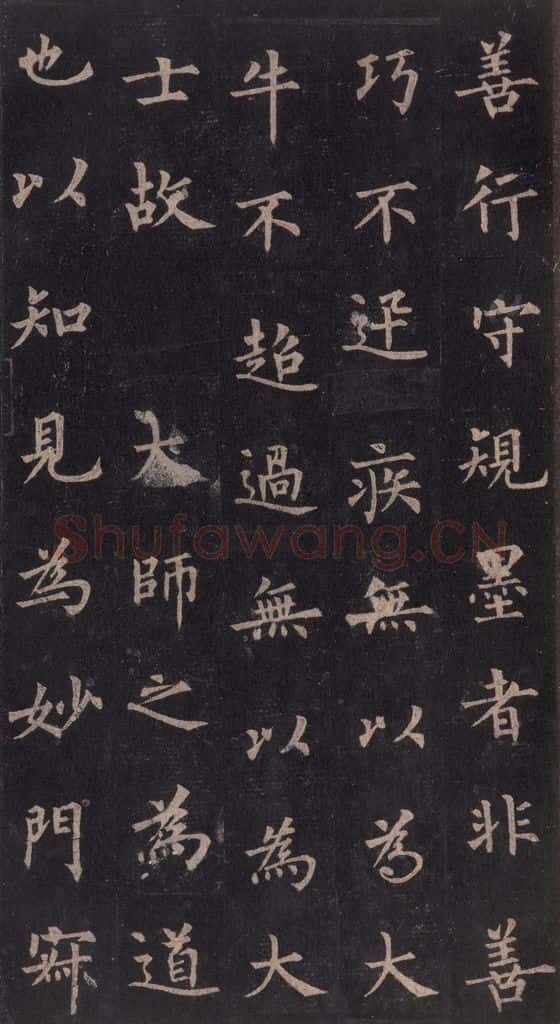 善行守規墨者非善
巧不迟疾無以為大
牛不超過無以為大
士故大師之為道
也以知見為妙門寂
Shufawang.CN